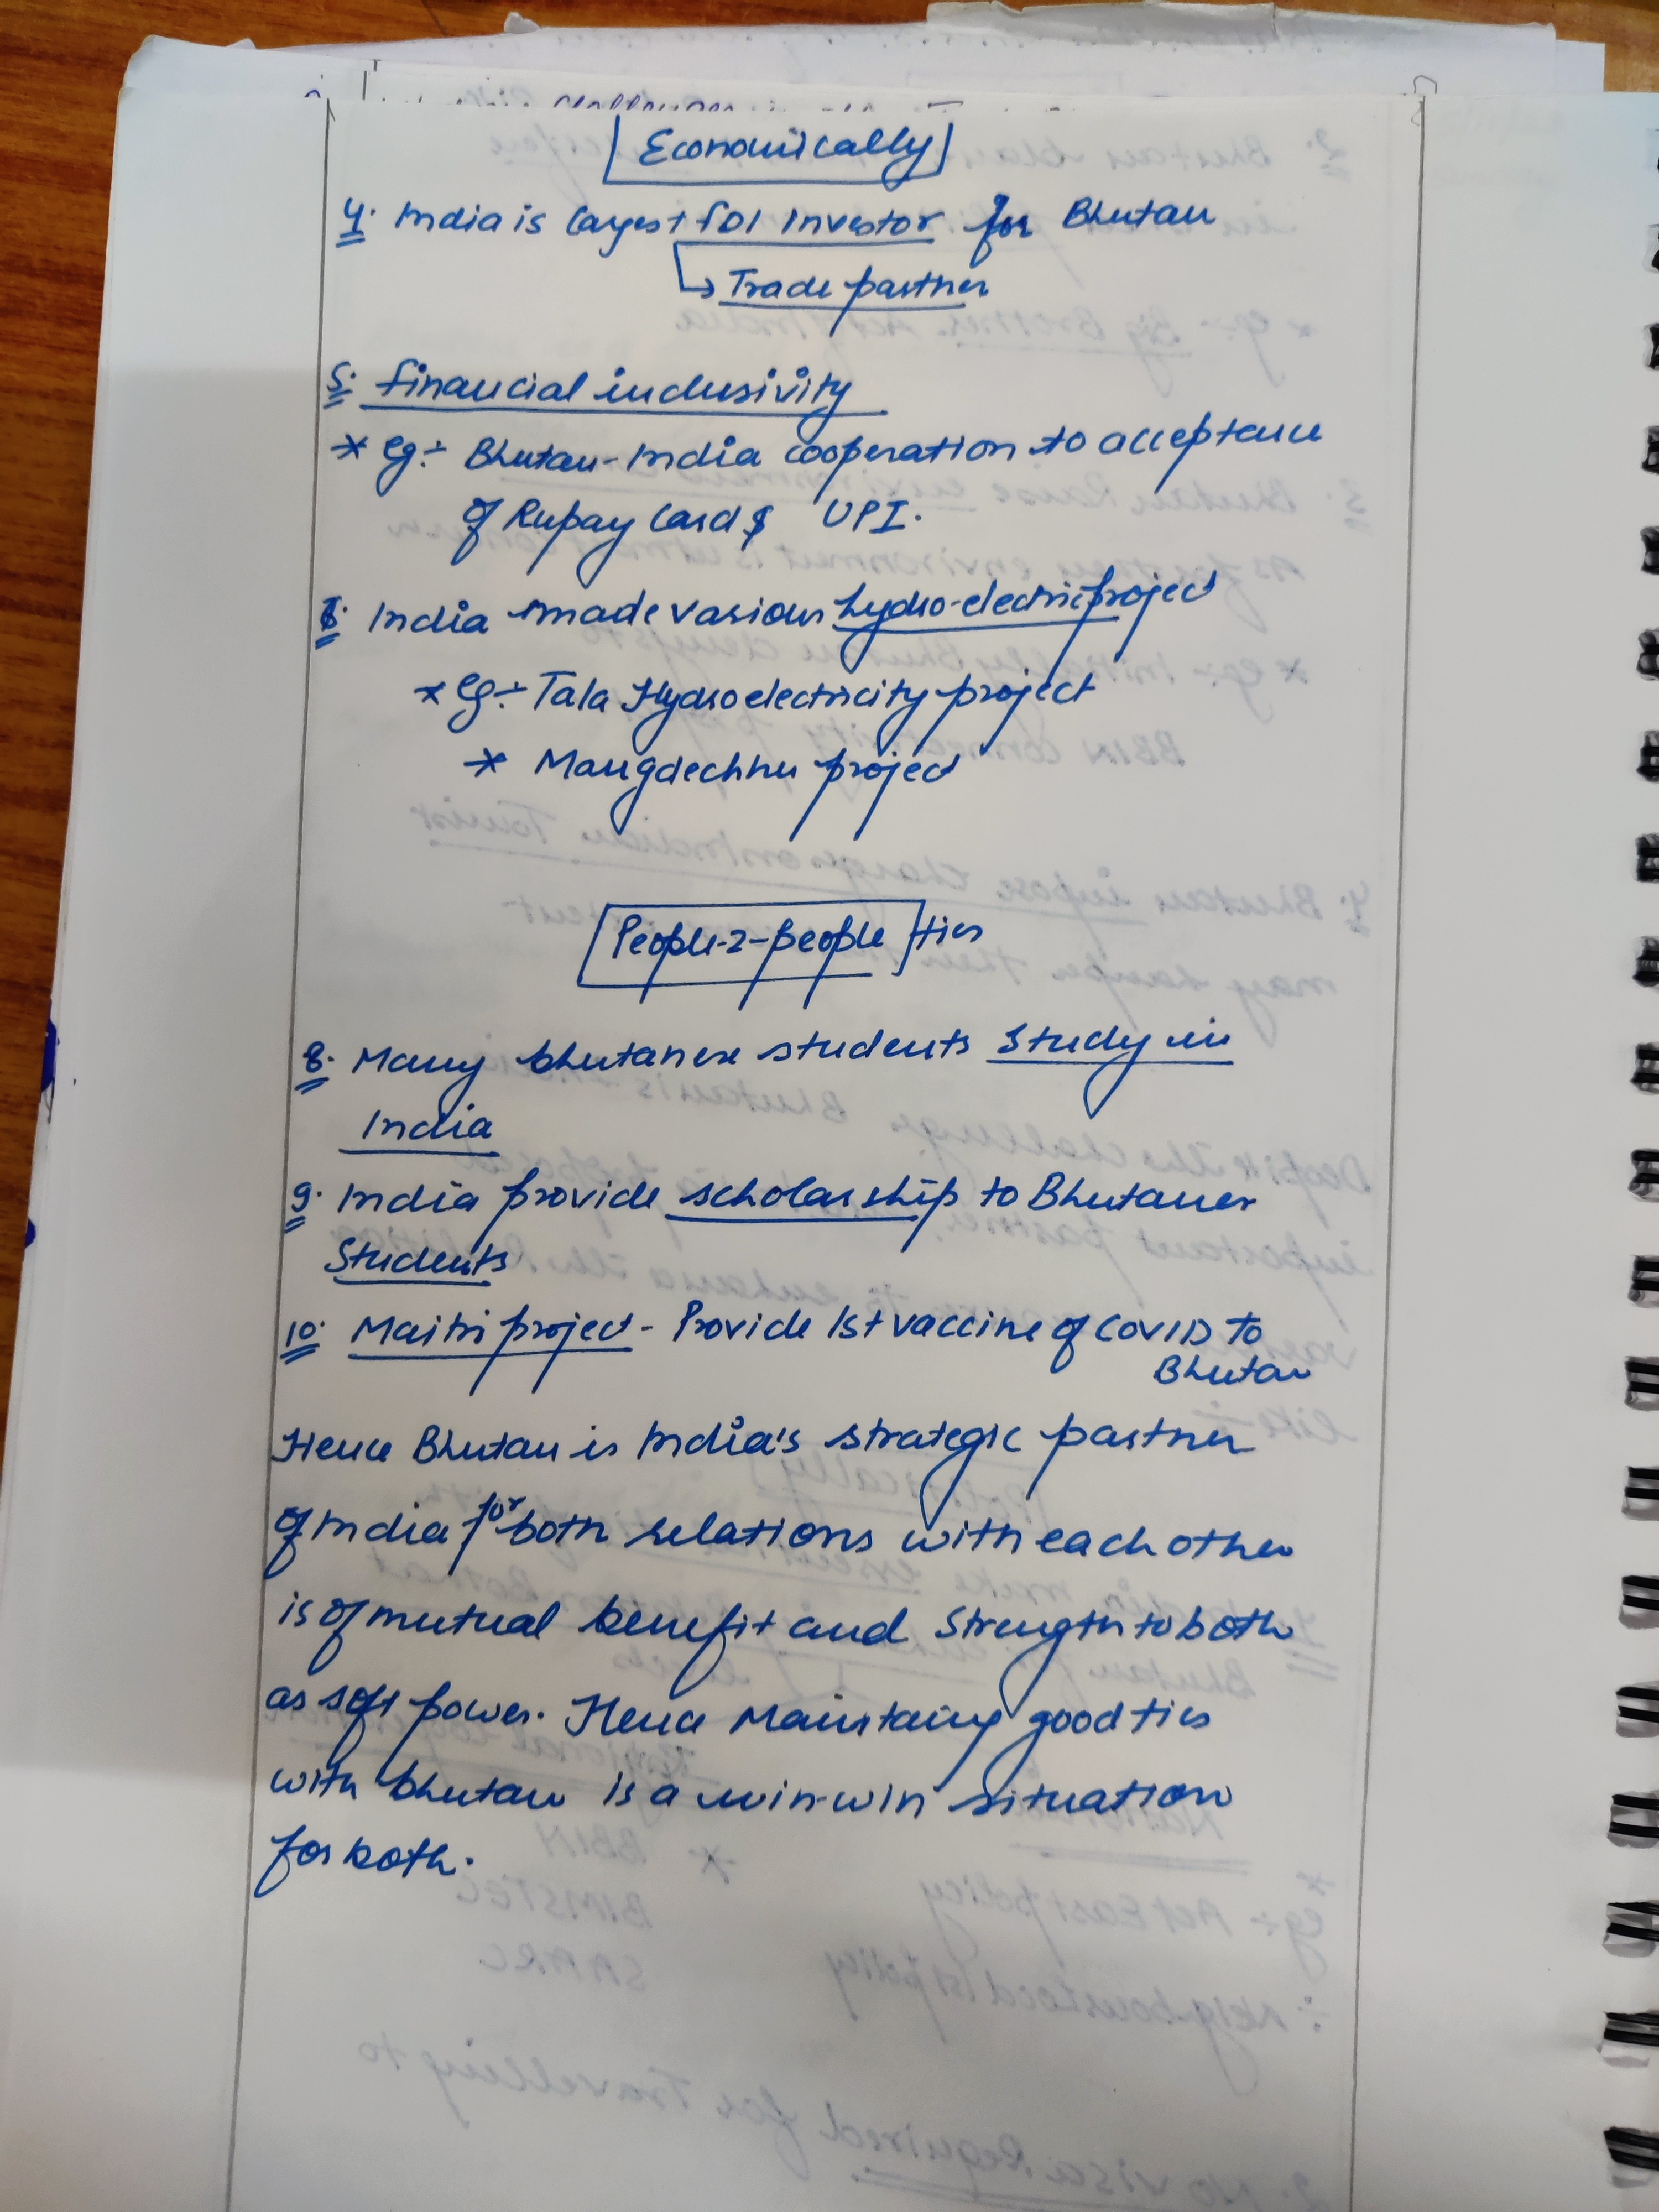 Economically
4. India is largest fDI Investor for Bhutan
→ Trade partner
5. financial inclusivity
* eg:- Bhutan-India cooperation to acceptance
of Rupay Card & UPI.
India made various hydro-electric project
* eg:- Tala Hydroelectricity project
* Mangdechhu project
People-2-people ties
8. Many bhutanese students study in
India
9. India provide scholarship to Bhutanese
Students
10. Maitri project - Provide 1st vaccine of COVID to
Bhutan
Hence Bhutan is India's strategic partner
of India for both relations with each other
is of mutual benefit and Strength to both
as soft power. Hence Maintaing good ties
with bhutan is a win-win situation
for both.